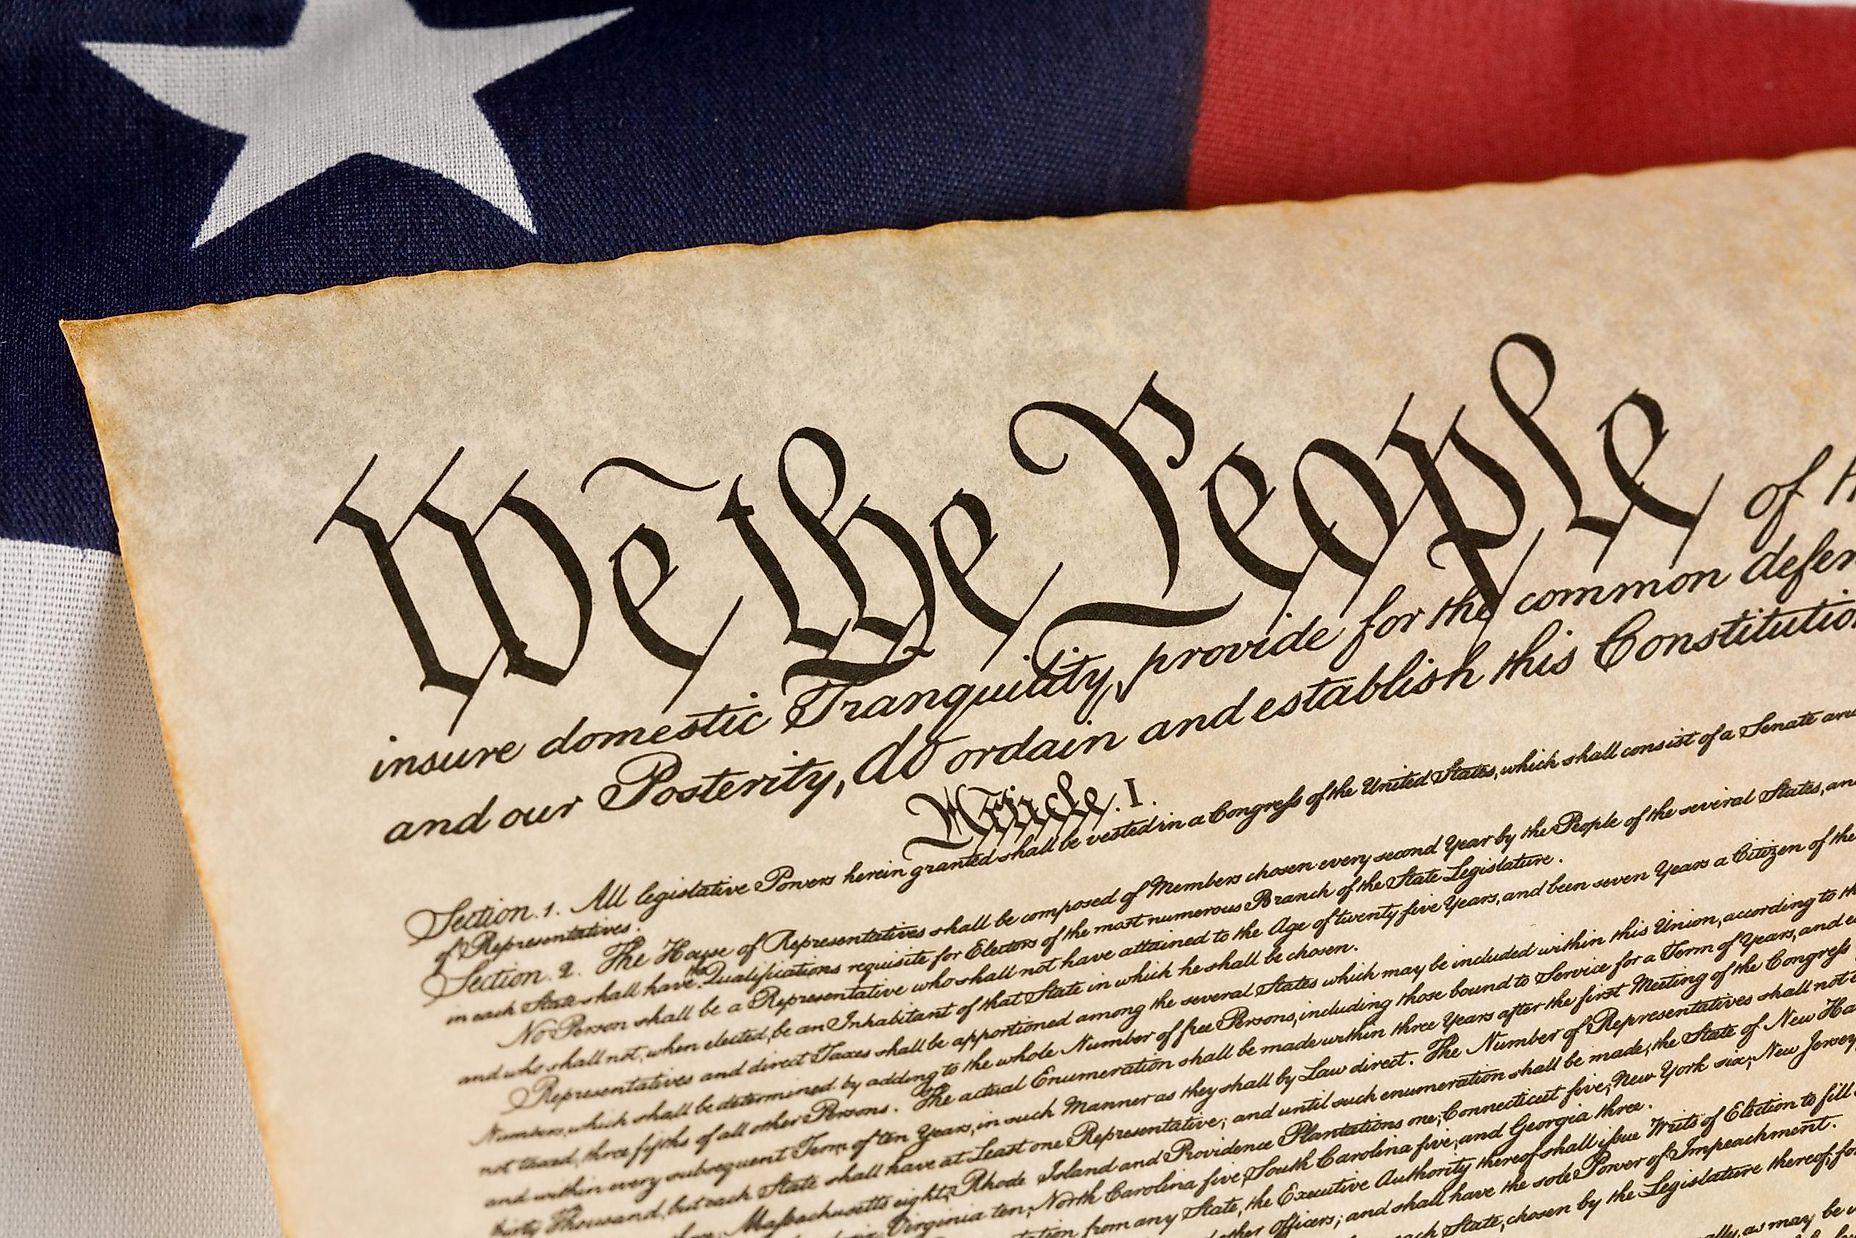 We the People of
insure domestic Tranquility, provide for the common
and our Posterity, do ordain and establish this Constitution
Article. I.
Section. 1. All legislative Powers herein granted shall be vested in a Congress of the United States, which shall consist of a Senate and
of Representatives.
Section. 2. The House of Representatives shall be composed of Members chosen every second Year by the People of the several States, and
in each State shall have the Qualifications requisite for Electors of the most numerous Branch of the State Legislature.
No Person shall be a Representative who shall not have attained to the Age of twenty five Years, and been seven Years a Citizen of the
and who shall not, when elected, be an Inhabitant of that State in which he shall be chosen.
Representatives and direct Taxes shall be apportioned among the several States which may be included within this Union, according to
Numbers, which shall be determined by adding to the whole Number of free Persons, including those bound to Service for a Term of Years, and
not taxed, three fifths of all other Persons. The actual Enumeration shall be made within three Years after the first Meeting of the Congress
and within every subsequent Term of ten Years, in such Manner as they shall by Law direct. The Number of Representatives shall not
thirty Thousand, but each State shall have at Least one Representative; and until such enumeration shall be made, the State of New
Massachusetts eight, Rhode Island and Providence Plantations one, Connecticut five, New York six, New Jersey
Virginia ten, North Carolina five, South Carolina five, and Georgia three.
from any State, the Executive Authority thereof shall issue Writs of Election to fill
other Officers; and shall have the sole Power of Impeachment.
State, chosen by the Legislature thereof, for
as may be